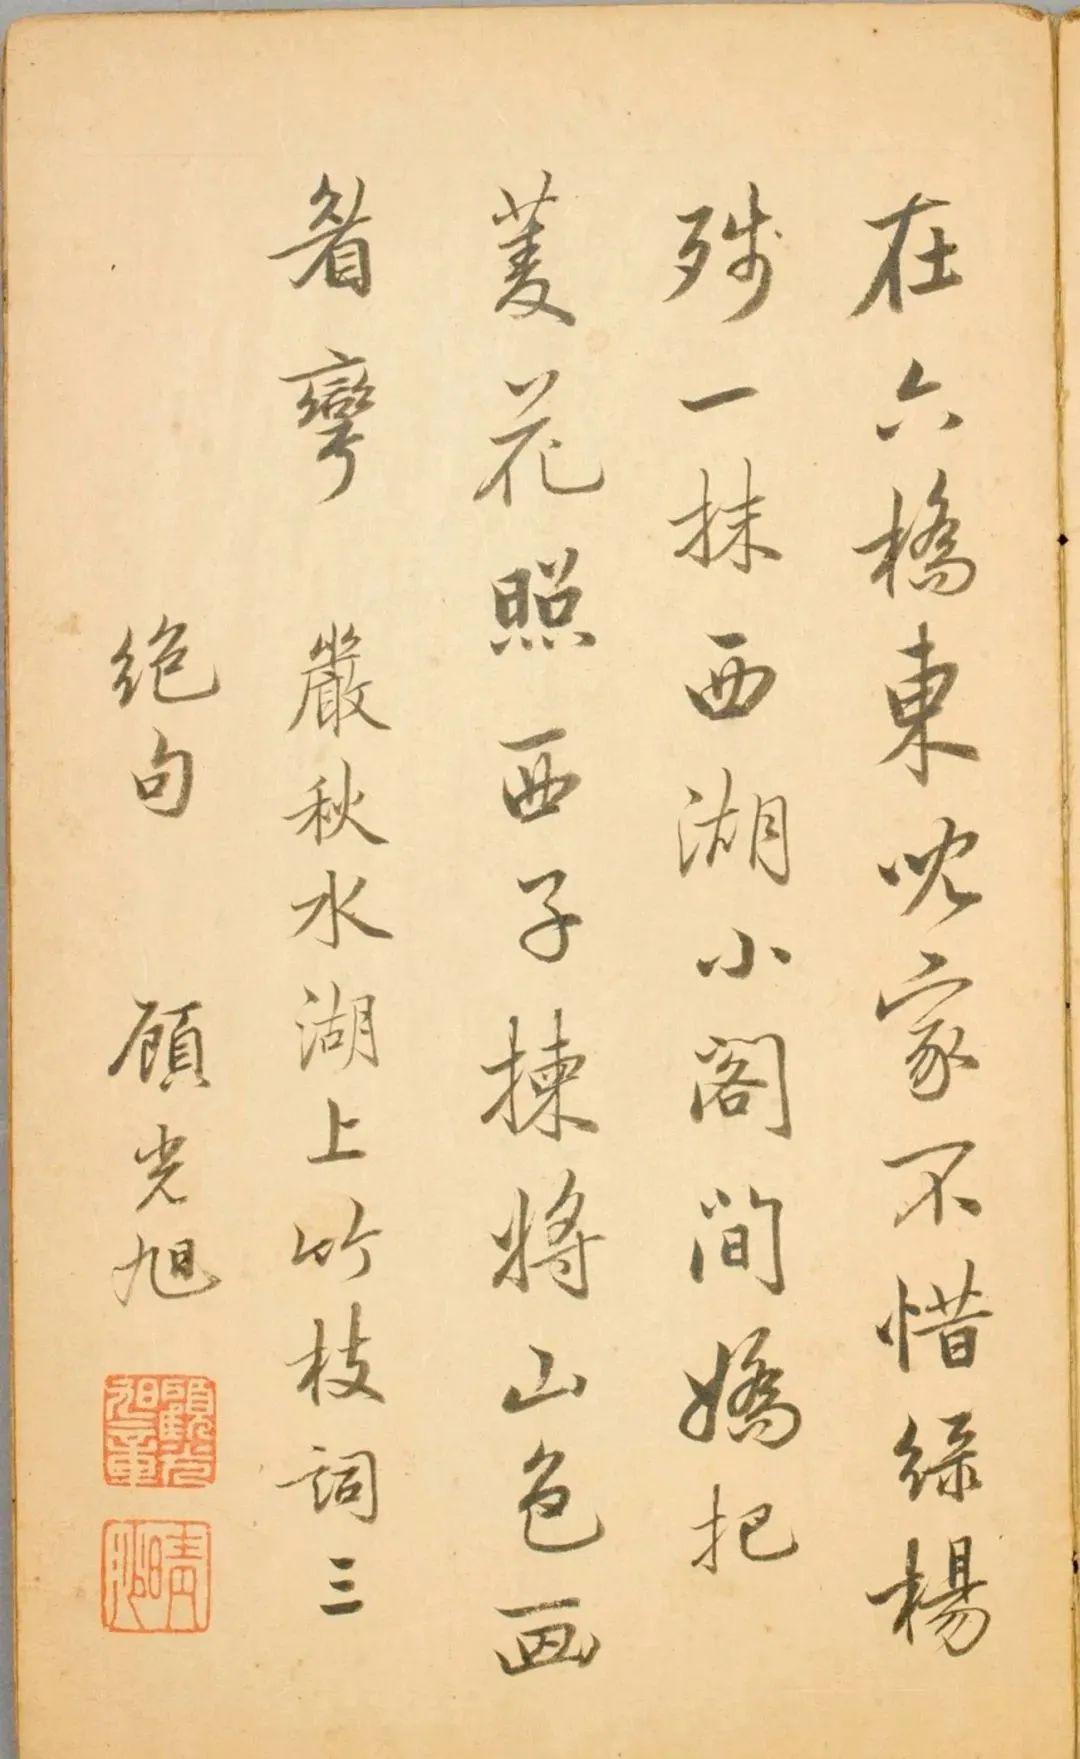 在六橋東家不惜綠楊
殘一抹西湖小閣間嬌把
菱花照西子揀將山色画
眉彎 嚴秋水湖上竹枝詞三
絕句 顧光旭
顧光旭章
晴沙